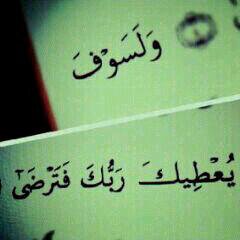 وَلَسَوْفَ
يُعْطِيكَ رَبُّكَ فَتَرْضَىٰٓ